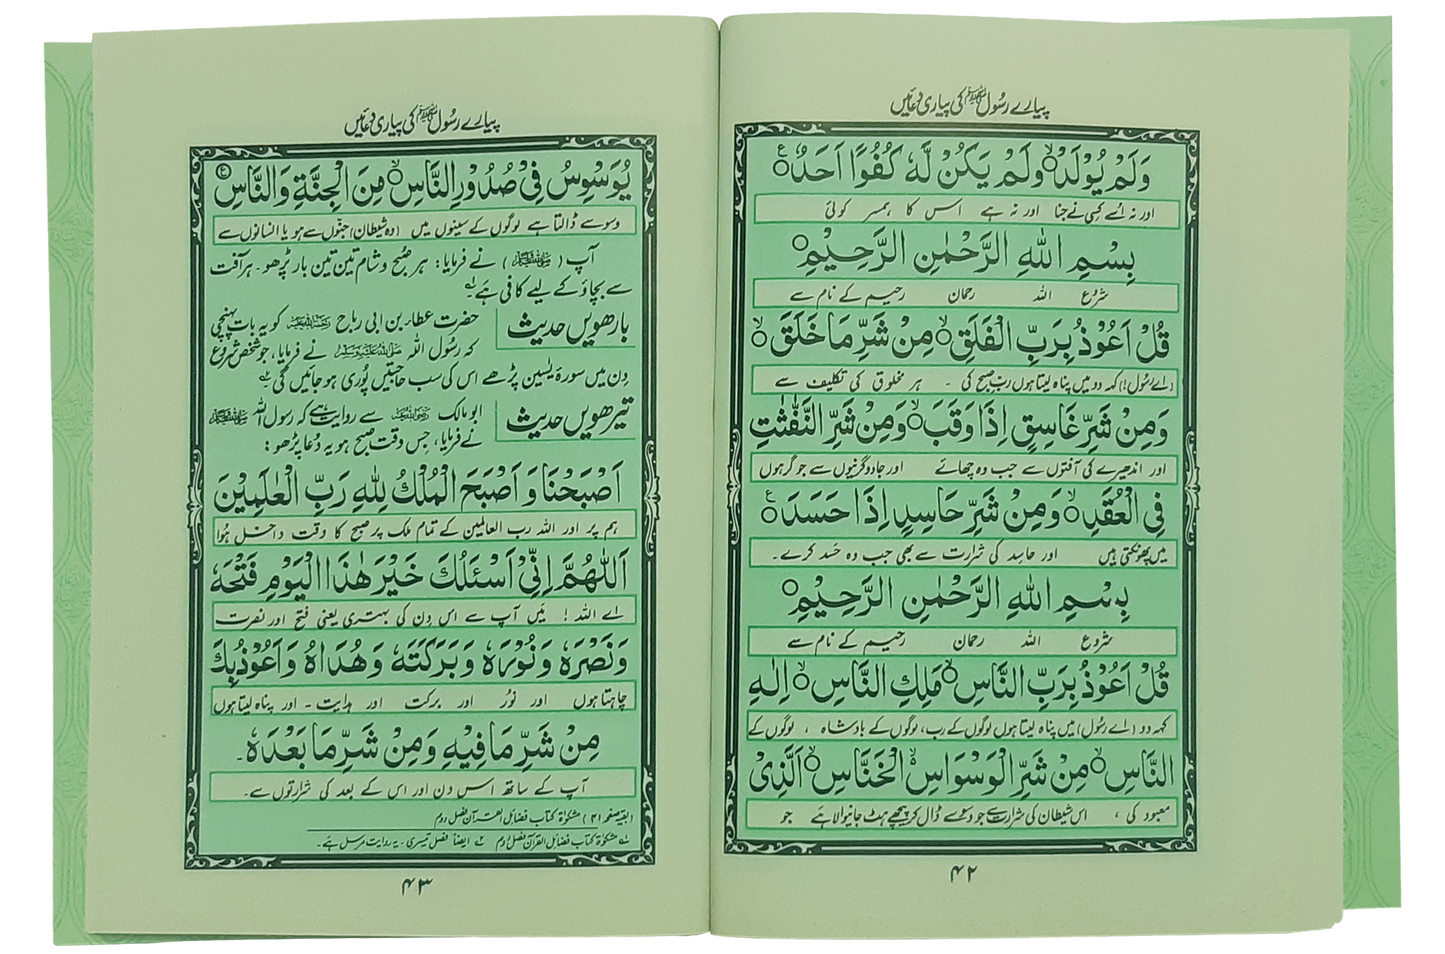 پیارے رسُول ﷺ کی پیاری دعائیں
وَلَمْ يُوْلَدْ۝ۙ وَلَمْ يَكُنْ لَّهٗ كُفُوًا اَحَدٌ۝ع
اور نہ اُسے کسی نے جنا اور نہ ہے اس کا ہمسر کوئی
بِسْمِ اللّٰهِ الرَّحْمٰنِ الرَّحِيْمِ۝
شروع اللہ رحمان رحیم کے نام سے
قُلْ اَعُوْذُ بِرَبِّ الْفَلَقِ۝ۙ مِنْ شَرِّ مَا خَلَقَ۝ۙ
(اے رسُول!) کہہ دو میں پناہ لیتا ہوں ربِ صبح کی ۔ ہر مخلوق کی تکلیف سے
وَمِنْ شَرِّ غَاسِقٍ اِذَا وَقَبَ۝ۙ وَمِنْ شَرِّ النَّفّٰثٰتِ
اور اندھیرے کی آفتوں سے جب وہ چھائے اور جادوگرنیوں سے جو گرہوں
فِى الْعُقَدِ۝ۙ وَمِنْ شَرِّ حَاسِدٍ اِذَا حَسَدَ۝ع
میں پھونکتی ہیں اور حاسد کی شرارت سے بھی جب وہ حَسد کرے۔
بِسْمِ اللّٰهِ الرَّحْمٰنِ الرَّحِيْمِ۝
شروع اللہ رحمان رحیم کے نام سے
قُلْ اَعُوْذُ بِرَبِّ النَّاسِ۝ۙ مَلِكِ النَّاسِ۝ۙ اِلٰهِ
کہہ دو (اے رسُول) میں پناہ لیتا ہوں لوگوں کے رب، لوگوں کے بادشاہ ، لوگوں کے
النَّاسِ۝ۙ مِنْ شَرِّ الْوَسْوَاسِ الْخَنَّاسِ۝ۙ الَّذِىْ
معبود کی ، اس شیطان کی شرارت سے جو وسوسے ڈال کر پیچھے ہٹ جانیوالا ہے جو
۴۲
پیارے رسُول ﷺ کی پیاری دعائیں
يُوَسْوِسُ فِىْ صُدُوْرِ النَّاسِ۝ۙ مِنَ الْجِنَّةِ وَالنَّاسِ۝ع
وسوسے ڈالتا ہے لوگوں کے سینوں میں (وہ شیطان) جنّوں سے ہو یا انسانوں سے
آپ (ﷺ) نے فرمایا: ہر صبح و شام تین تین بار پڑھو۔ ہر آفت
سے بچاؤ کے لیے کافی ہے۔
بارھویں حدیث حضرت عطار بن ابی رباح کو یہ بات پہنچی
کہ رسُول اللہ ﷺ نے فرمایا، جو شخص شروع
دِن میں سورۂ یٰسین پڑھے اس کی سب حاجتیں پُوری ہو جائیں گی۔
تیرھویں حدیث ابو مالک سے روایت ہے کہ رسول اللہ ﷺ
نے فرمایا، جس وقت صبح ہو یہ دُعا پڑھو:
اَصْبَحْنَا وَاَصْبَحَ الْمُلْكُ لِلّٰهِ رَبِّ الْعٰلَمِيْنَ
ہم پر اور اللہ رب العالمین کے تمام ملک پر صبح کا وقت داخل ہُوا
اَللّٰهُمَّ اِنِّىْ اَسْئَلُكَ خَيْرَ هٰذَا الْيَوْمِ فَتْحَهٗ
اے اللہ ! میں آپ سے اس دن کی بہتری یعنی فتح اور نصرت
وَنَصْرَهٗ وَنُوْرَهٗ وَبَرَكَتَهٗ وَهُدَاهُ وَاَعُوْذُ بِكَ
چاہتا ہوں اور نُور اور برکت اور ہدایت ۔ اور پناہ لیتا ہوں
مِنْ شَرِّ مَا فِيْهِ وَمِنْ شَرِّ مَا بَعْدَهٗ۔
آپ کے ساتھ اس دن اور اس کے بعد کی شرارتوں سے۔
(بقیہ صفحہ ۴۱) مشکوٰۃ کتاب فضائل القرآن فصل دوم
۱ مشکوٰۃ کتاب فضائل القرآن فصل دوم ۲ ایضاً فصل تیسری۔ یہ روایت مرسل ہے۔
۴۳